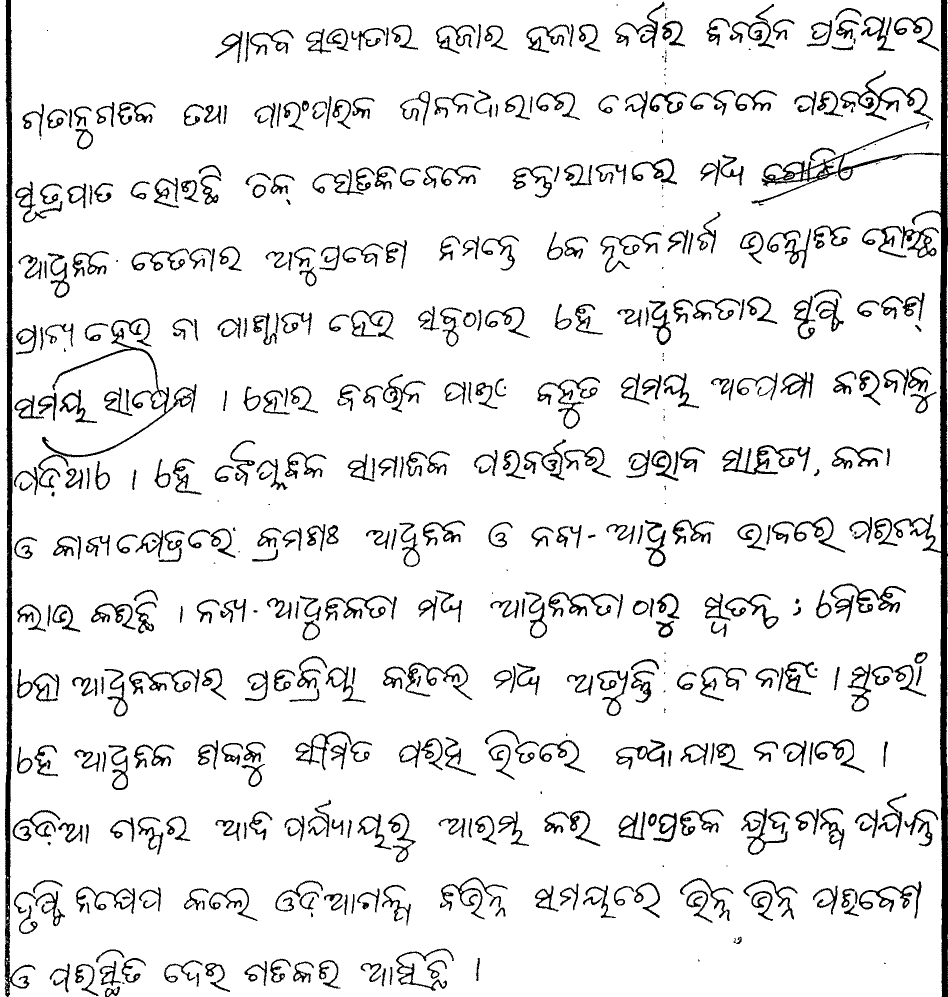 ମାନବ ସଭ୍ୟତାର ହଜାର ହଜାର ବର୍ଷର ବିବର୍ତ୍ତନ ପ୍ରକ୍ରିୟାରେ
ଗତାନୁଗତିକ ତଥା ପାରଂପରିକ ଜୀବନଧାରାରେ ଯେତେବେଳେ ପରିବର୍ତ୍ତନର
ସୂତ୍ରପାତ ହୋଇଛି ଠିକ୍ ସେତିକିବେଳେ ଚିନ୍ତାରାଜ୍ୟରେ ମଧ୍ୟ
ଆଧୁନିକ ଚେତନାର ଅନୁପ୍ରବେଶ ନିମନ୍ତେ ଏକ ନୂତନମାର୍ଗ ଉନ୍ମୋଚିତ ହୋଇଛି
ପ୍ରାଚ୍ୟ ହେଉ ବା ପାଶ୍ଚାତ୍ୟ ହେଉ ସବୁଠାରେ ଏହି ଆଧୁନିକତାର ସୃଷ୍ଟି ବେଶ୍
ସମୟ ସାପେକ୍ଷ । ଏହାର ବିବର୍ତ୍ତନ ପାଇଁ ବହୁତ ସମୟ ଅପେକ୍ଷା କରିବାକୁ
ପଡ଼ିଥାଏ । ଏହି ବୈପ୍ଳବିକ ସାମାଜିକ ପରିବର୍ତ୍ତନର ପ୍ରଭାବ ସାହିତ୍ୟ, କଳା
ଓ କାବ୍ୟକ୍ଷେତ୍ରରେ କ୍ରମଶଃ ଆଧୁନିକ ଓ ନବ୍ୟ-ଆଧୁନିକ ଭାବରେ ପରିଚୟ
ଲାଭ କରିଛି । ନବ୍ୟ-ଆଧୁନିକତା ମଧ୍ୟ ଆଧୁନିକତା ଠାରୁ ସ୍ୱତନ୍ତ୍ର ; ଏମିତିକି
ଏହା ଆଧୁନିକତାର ପ୍ରତିକ୍ରିୟା କହିଲେ ମଧ୍ୟ ଅତ୍ୟୁକ୍ତି ହେବ ନାହିଁ । ସୁତରାଁ
ଏହି ଆଧୁନିକ ଶବ୍ଦକୁ ସୀମିତ ପରିଧି ଭିତରେ ବଂଧା ଯାଇ ନପାରେ ।
ଓଡ଼ିଆ ଗଳ୍ପର ଆଦି ପର୍ଯ୍ୟାୟରୁ ଆରମ୍ଭ କରି ସାଂପ୍ରତିକ କ୍ଷୁଦ୍ରଗଳ୍ପ ପର୍ଯ୍ୟନ୍ତ
ଦୃଷ୍ଟି ନିକ୍ଷେପ କଲେ ଓଡ଼ିଆଗଳ୍ପ ବିଭିନ୍ନ ସମୟରେ ଭିନ୍ନ ଭିନ୍ନ ପରିବେଶ
ଓ ପରିସ୍ଥିତି ଦେଇ ଗତିକରି ଆସିଛି ।